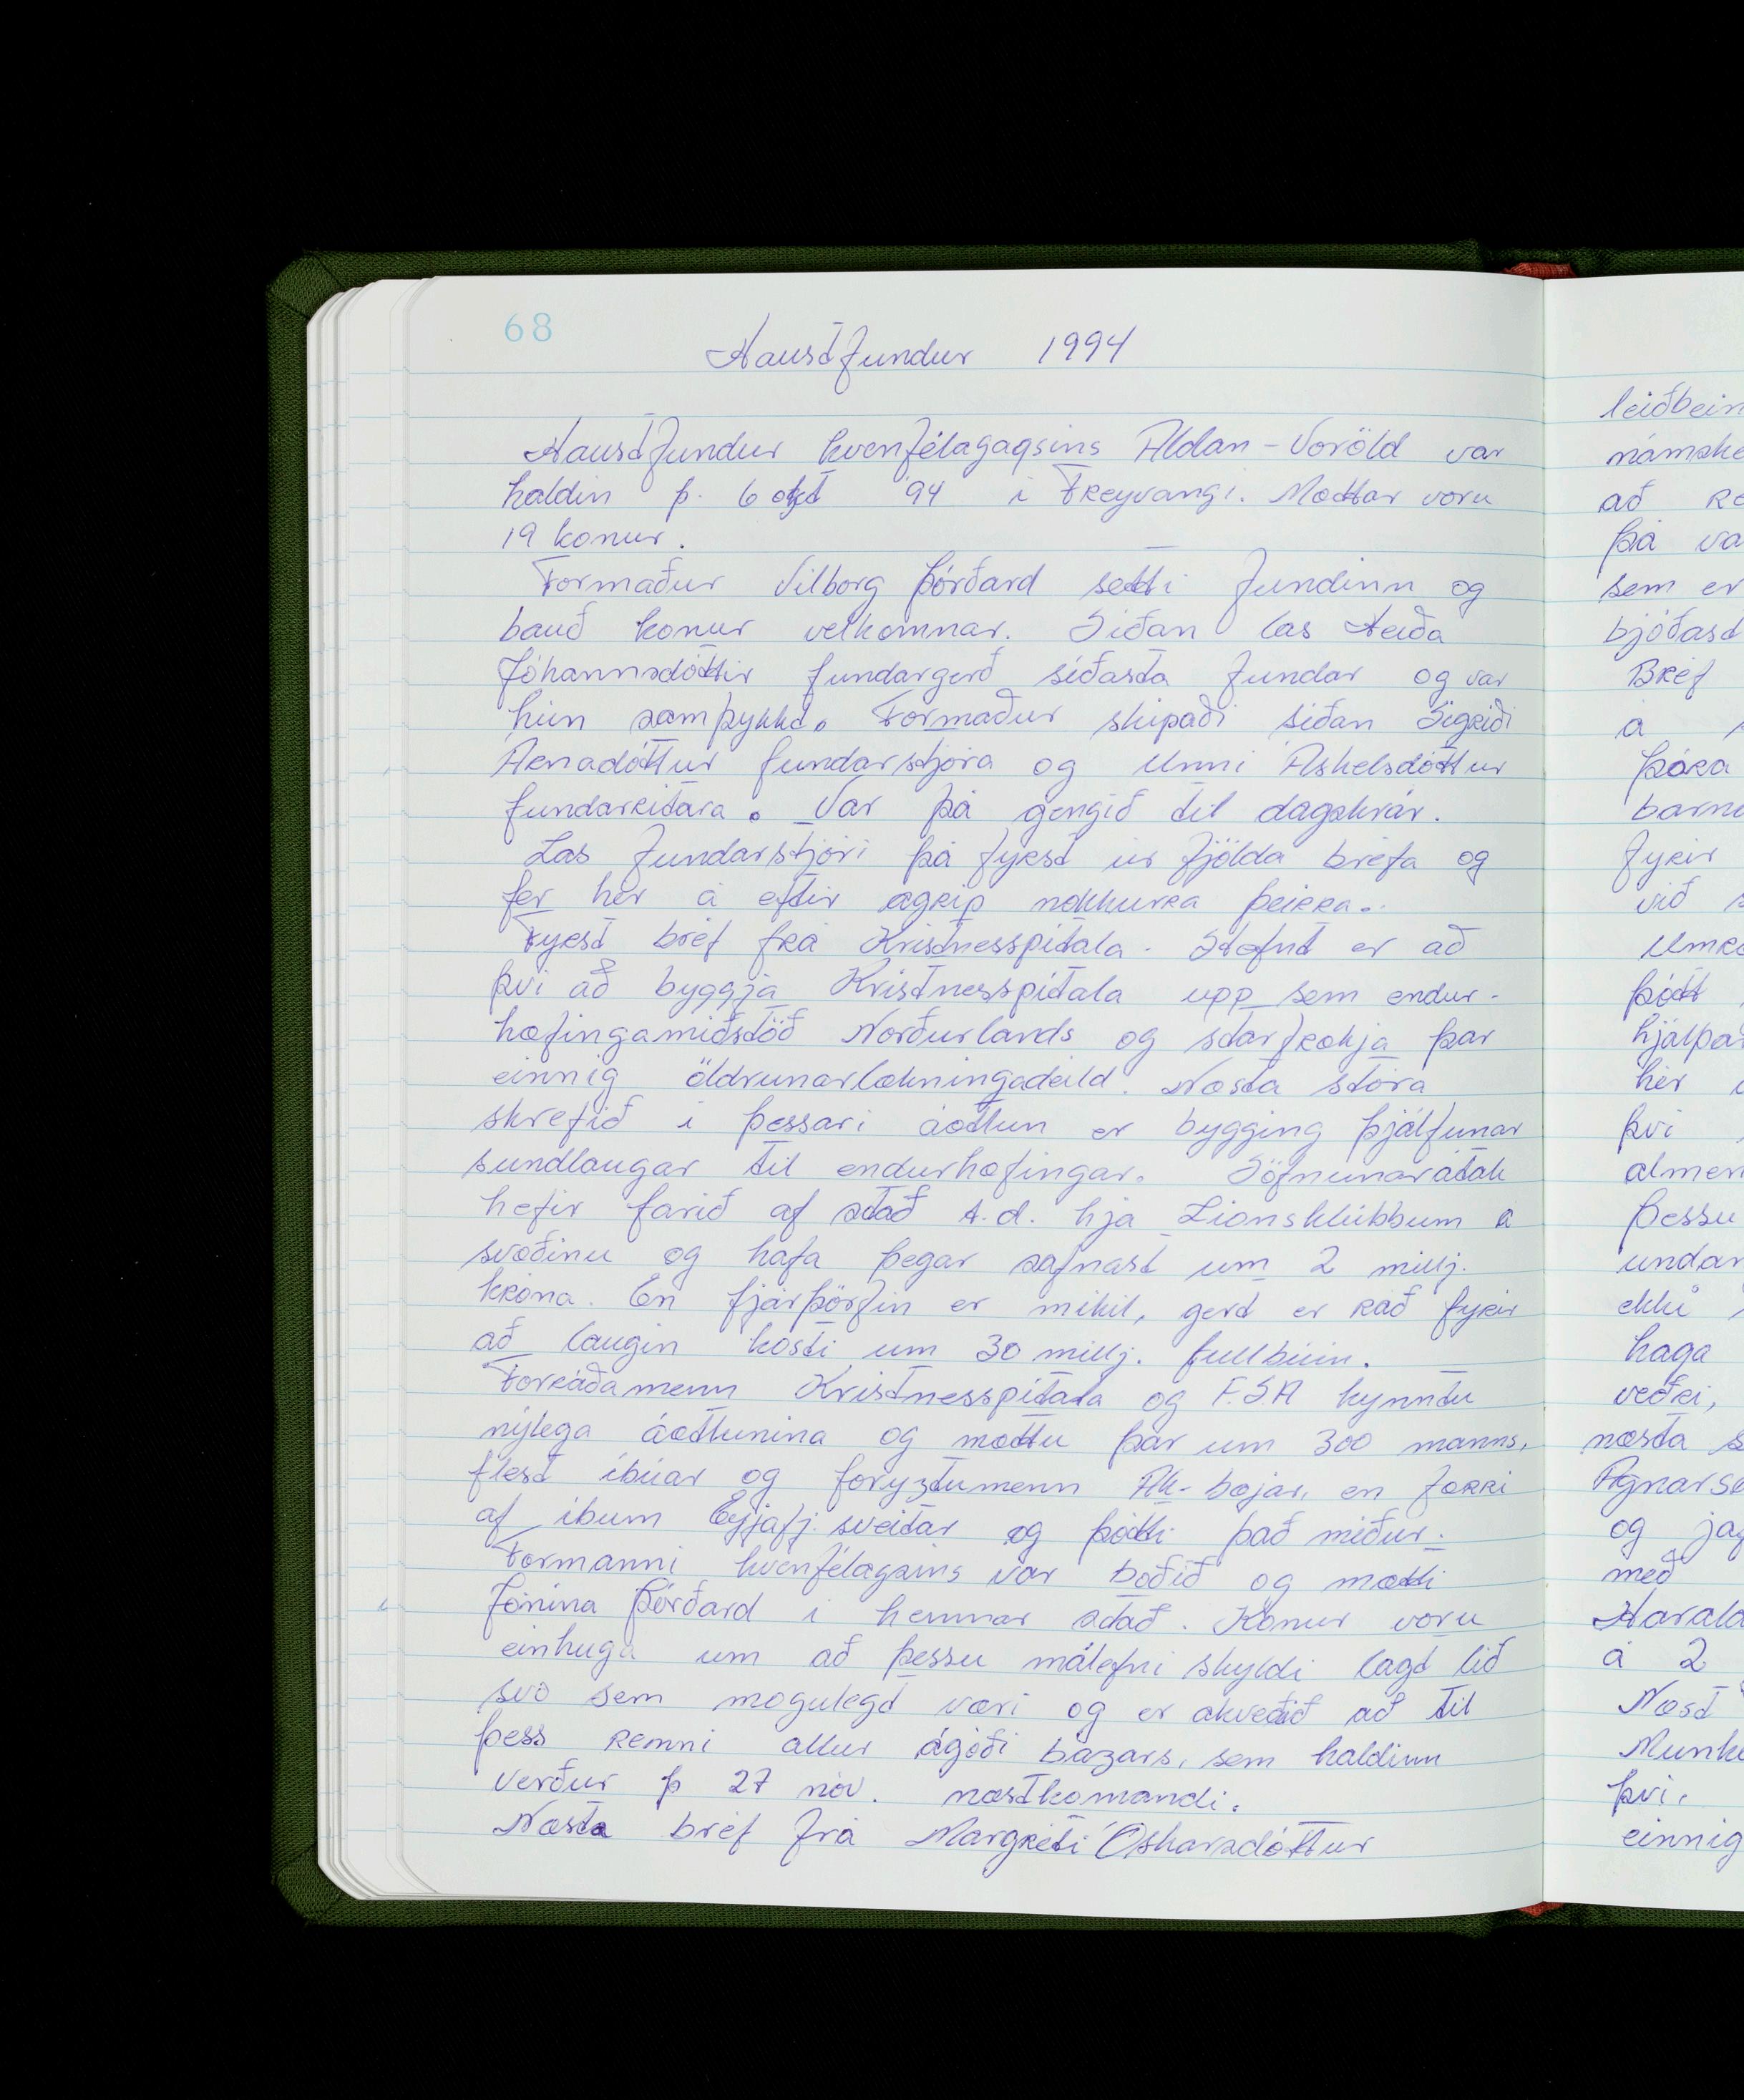 68
Haustfundur 1994
Haustfundur kvenfélagagsins Aldan-Voröld var
haldin þ. 6 okt '94 í Freyvangi. Mættar voru
19 konur.
Formaður Vilborg Þórðard setti fundinn og
bauð konur velkomnar. Síðan las Heiða
Jóhannsdóttir fundargerð síðasta fundar og var
hún samþykkt. Formaður skipaði síðan Sigríði
Arnadóttur fundarstjóra og Unni Áskelsdóttur
fundarritara. Var þá gengið til dagskrár.
Las fundarstjóri þá fyrst úr fjölda bréfa og
fer hér á eftir ágrip nokkurra þeirra.
Fyrst bréf frá Kristnesspítala. Stefnt er að
því að byggja Kristnesspítala upp sem endur-
hæfingamiðstöð Norðurlands og starfrækja þar
einnig öldrunarlækningadeild. Næsta stóra
skrefið í þessari áætlun er bygging þjálfunar
sundlaugar til endurhæfingar. Söfnunarátak
hefir farið af stað t.d. hjá Lionsklúbbum á
svæðinu og hafa þegar safnast um 2 millj.
króna. En fjárþörfin er mikil, gert er ráð fyrir
að laugin kosti um 30 millj. fullbúin.
Forráðamenn Kristnesspítala og F.S.A kynntu
nýlega áætlunina og mættu þar um 300 manns,
flest íbúar og forystumenn Ak-bæjar, en færri
af íbum Eyjafj.sveitar og þótti það miður.
Formanni kvenfélagsins var boðið og mætti
Jónína Þórðard í hennar stað. Konur voru
einhuga um að þessu málefni skyldi lagt lið
svo sem mögulegt væri og er ákveðið að til
þess renni allur ágóði bazars, sem haldinn
verður þ 27 nóv. næstkomandi.
Næsta bréf frá Margréti Óskarsdóttur
leiðbein
námske
að re
þá va
sem er
bjóðast
Bréf
á
Þóra
barna
fyrir
við s
Umræ
þótt
hjálpa
hér
því
almen
þessu
undan
ekki
haga
veðri,
næsta s
Agnarse
og jaf
með
Harald
á 2
Næst
Munk
því,
einnig